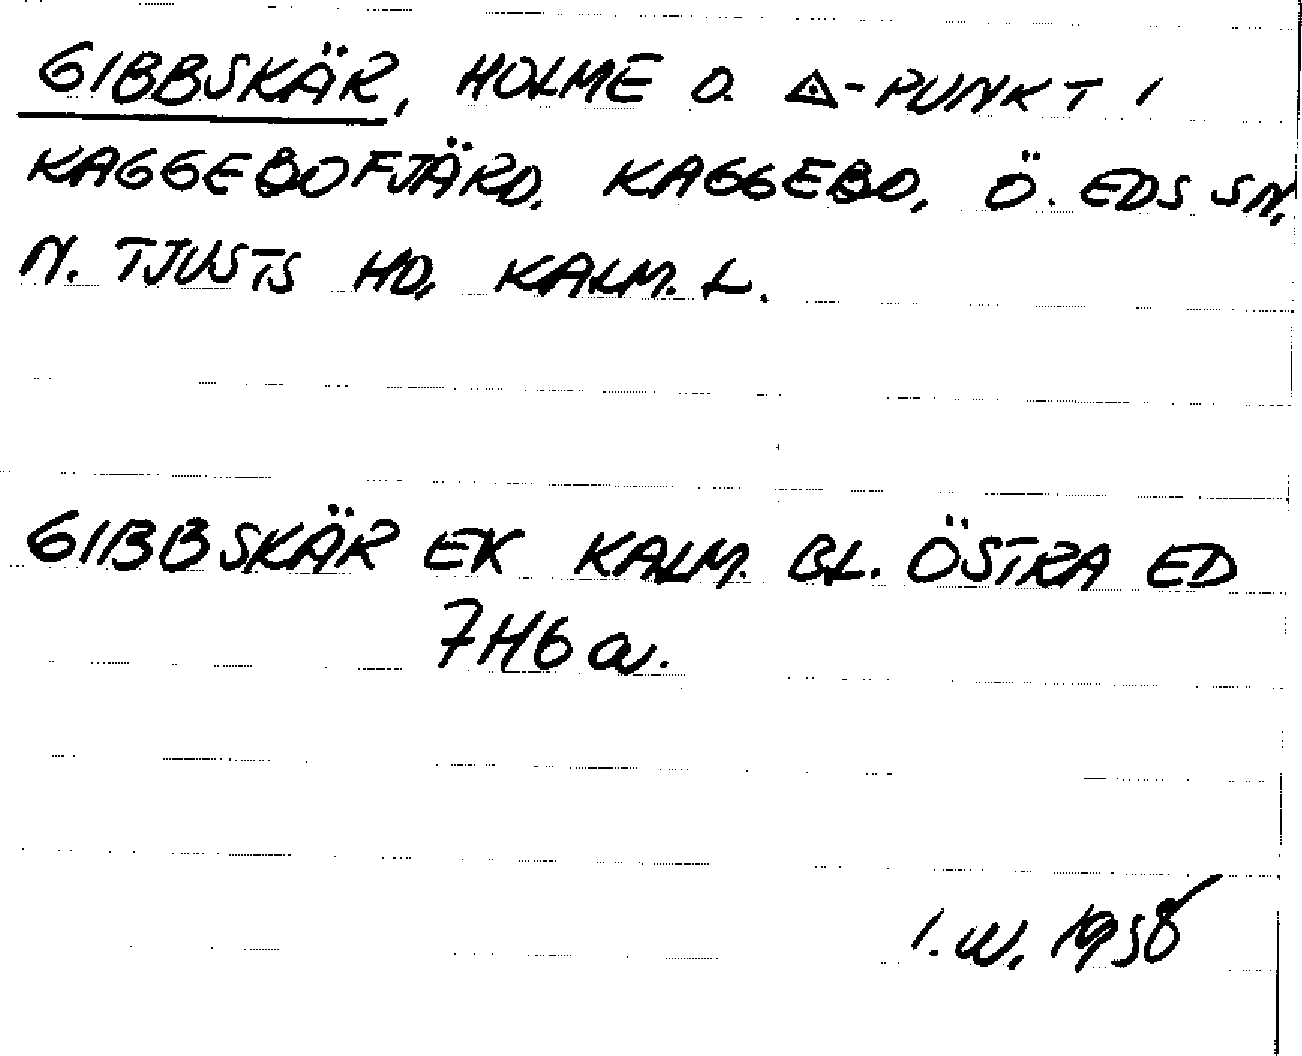 GIBBSKÄR, HOLME O. △-PUNKT I
KAGGEBOFJÄRD. KAGGEBO, Ö. EDS SN,
N. TJUSTS HD, KALM. L.
GIBBSKÄR EK KALM. BL. ÖSTRA ED
7H6a.
I.W. 1958